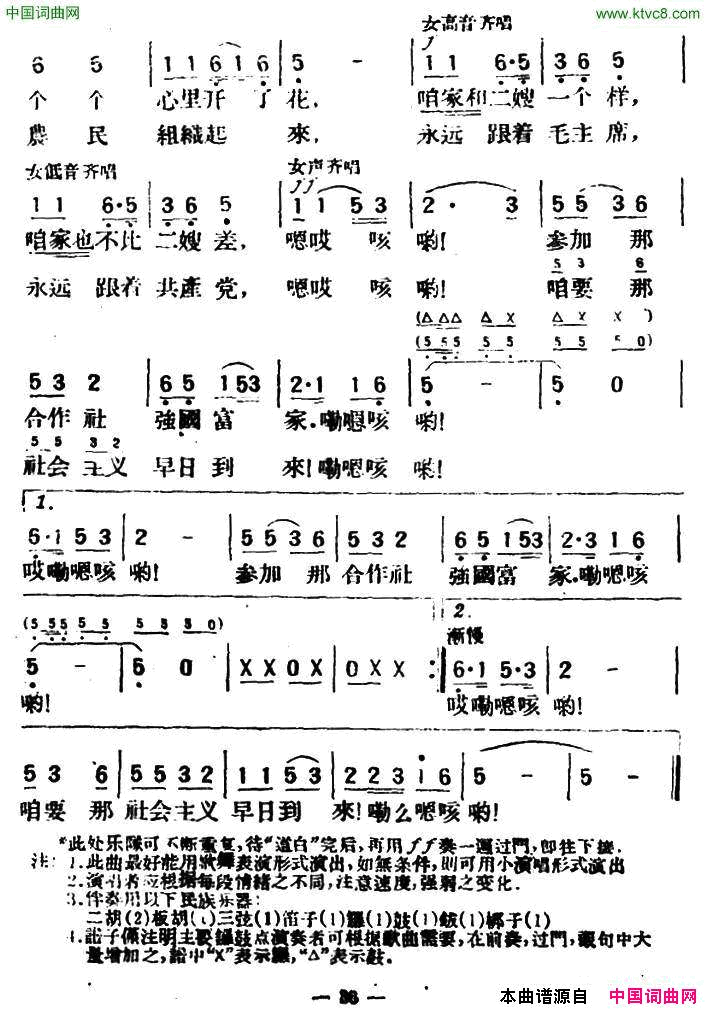 中国词曲网
www.ktvc8.com
女高音齐唱
f
6 5 | 1 1 6 1 6 | 5 - | 1 1 6·5 | 3 6 5 |
个 个 心里开 了 花, 咱家和二嫂 一个 样,
農 民 組織起 來, 永远 跟着 毛主 席,
女低音齐唱 女声齐唱
ff
1 1 6·5 | 3 6 5 | 1 1 5 3 | 2· 3 | 5 5 3 6 |
咱家也不比 二嫂 差, 嗯哎 咳 喲! 参加 那
5 3 6
永远 跟着 共產 党, 嗯哎 咳 喲! 咱要 那
(△△△ △ X | △ X X )
(5 5 5 5 5 | 5 5 5 0)
5 3 2 | 6 5 1 5 3 | 2·1 1 6 | 5 - | 5 0
合作 社 強國富 家.嘞嗯咳 喲!
5 5 3 2
社会 主义 早日 到 來!嘞嗯咳 喲!
1.
6·1 5 3 | 2 - | 5 5 3 6 | 5 3 2 | 6 5 1 5 3 | 2·3 1 6 |
哎嘞嗯咳 喲! 参加 那 合作社 強國富 家.嘞嗯咳
(5 5 5 5 5 5 3 3 0) 2.
漸慢
5 - | 5 0 | X X 0 X | 0 X X :‖ 6·1 5·3 | 2 - |
喲! 哎嘞嗯咳 喲!
5 3 6 | 5 5 3 2 | 1 1 5 3 | 2 2 2 3 i 6 | 5 - | 5 - ‖
咱要 那 社会主义 早日到 來!嘞么嗯咳 喲!
*此处乐隊可不断重复, 待“道白”完后, 再用ff奏一遍过門, 卽往下繼.
注: 1. 此曲最好能用歌舞表演形式演出, 如無条件, 則可用小演唱形式演出
2. 演唱者应根据每段情緒之不同, 注意速度, 强弱之变化.
3. 伴奏用以下民族乐器:
二胡(2)板胡(1)三弦(1)笛子(1)鑼(1)鼓(1)鈸(1)梆子(1)
4. 譜子僅注明主要鑼鼓点演奏者可根据歌曲需要, 在前奏, 过門, 觀句中大
量增加之, 譜中“X”表示鑼, “△”表示鼓.
— 36 —
本曲谱源自 中国词曲网